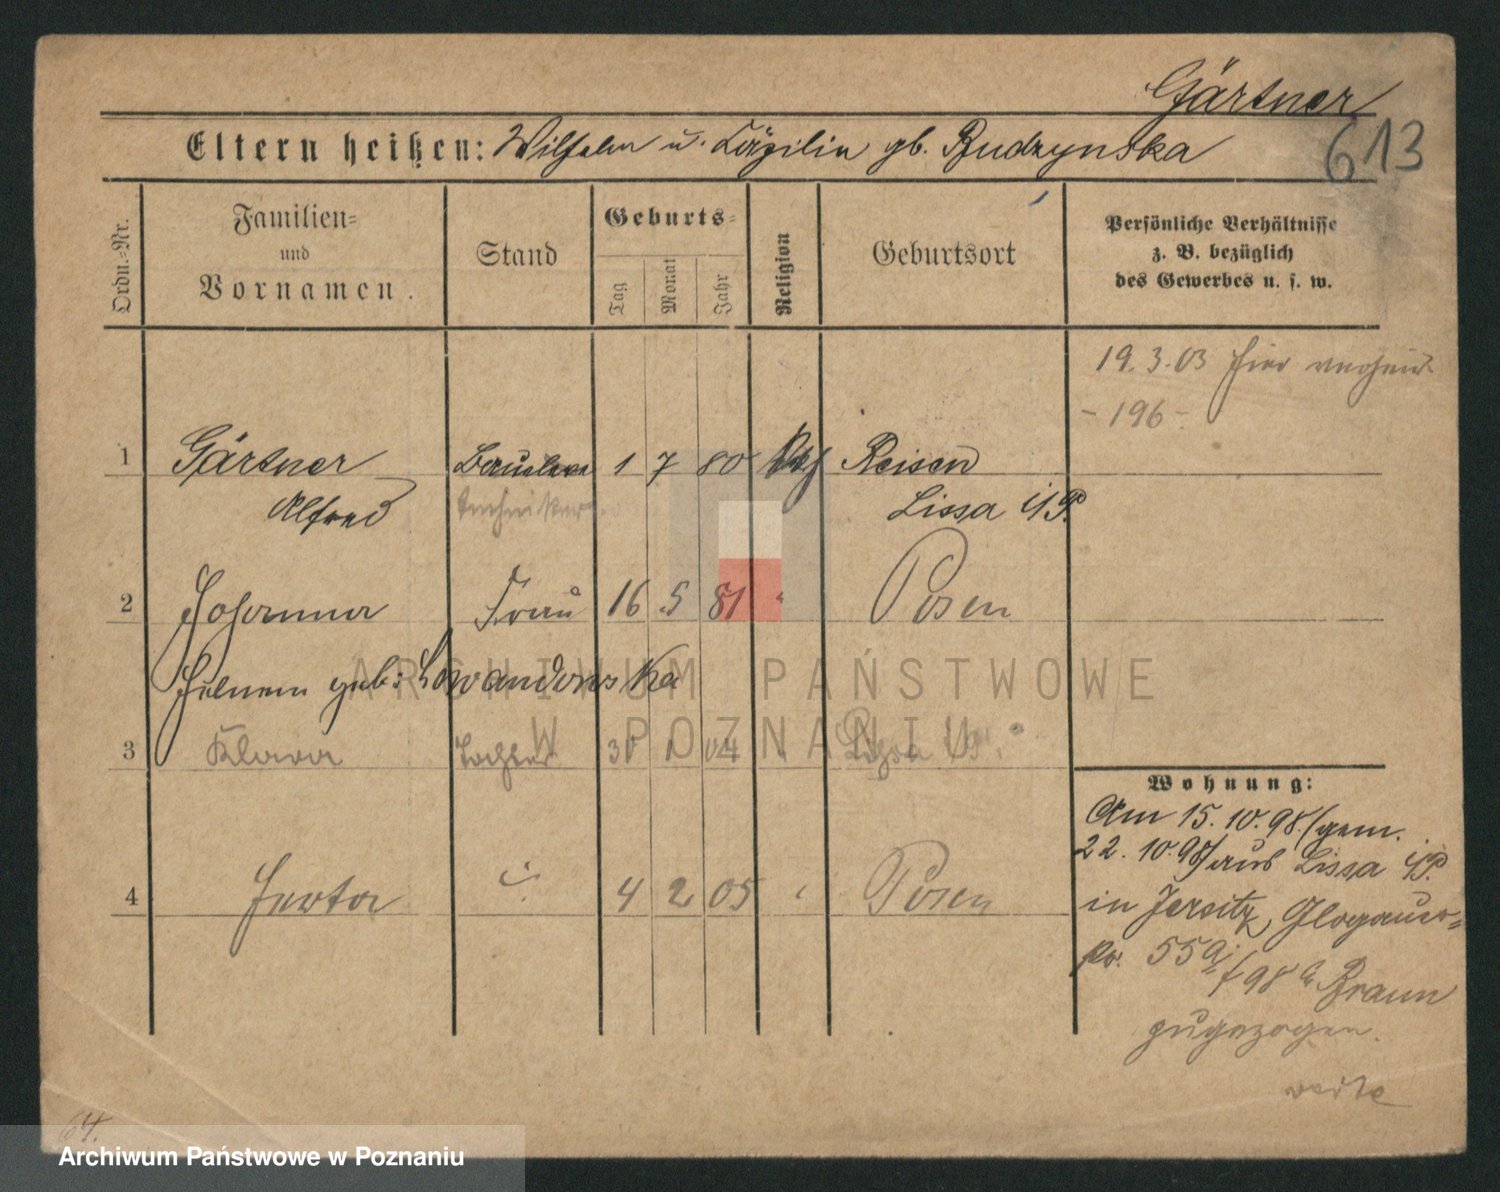 Gärtner
613
Eltern heißen: Wilhelm u. Cäzilia gb. Budzynska
Ordn.-Nr.
Familien-
und
Vornamen.
Stand
Geburts-
Tag
Monat
Jahr
Religion
Geburtsort
Persönliche Verhältnisse
z. B. bezüglich
des Gewerbes u. s. w.
19.3.03 hier verheir.
- 196 -
1 Gärtner 1 7 80 Reisen
Alfred techniker Lissa i/P.
2 Johanna Frau 16 5 81 " Posen
Helene geb: Lewandowska
ARCHIWUM PAŃSTWOWE
W POZNANIU
3 Klara Tochter 31 1 04
4 Herta 4 2 05 Posen
Wohnung:
Am 15.10.98/gem.
22.10.98/aus Lissa i/P.
in Jersitz, Glogauer-
str. 55a
f 98 b Braun
zugezogen.
64.
Archiwum Państwowe w Poznaniu